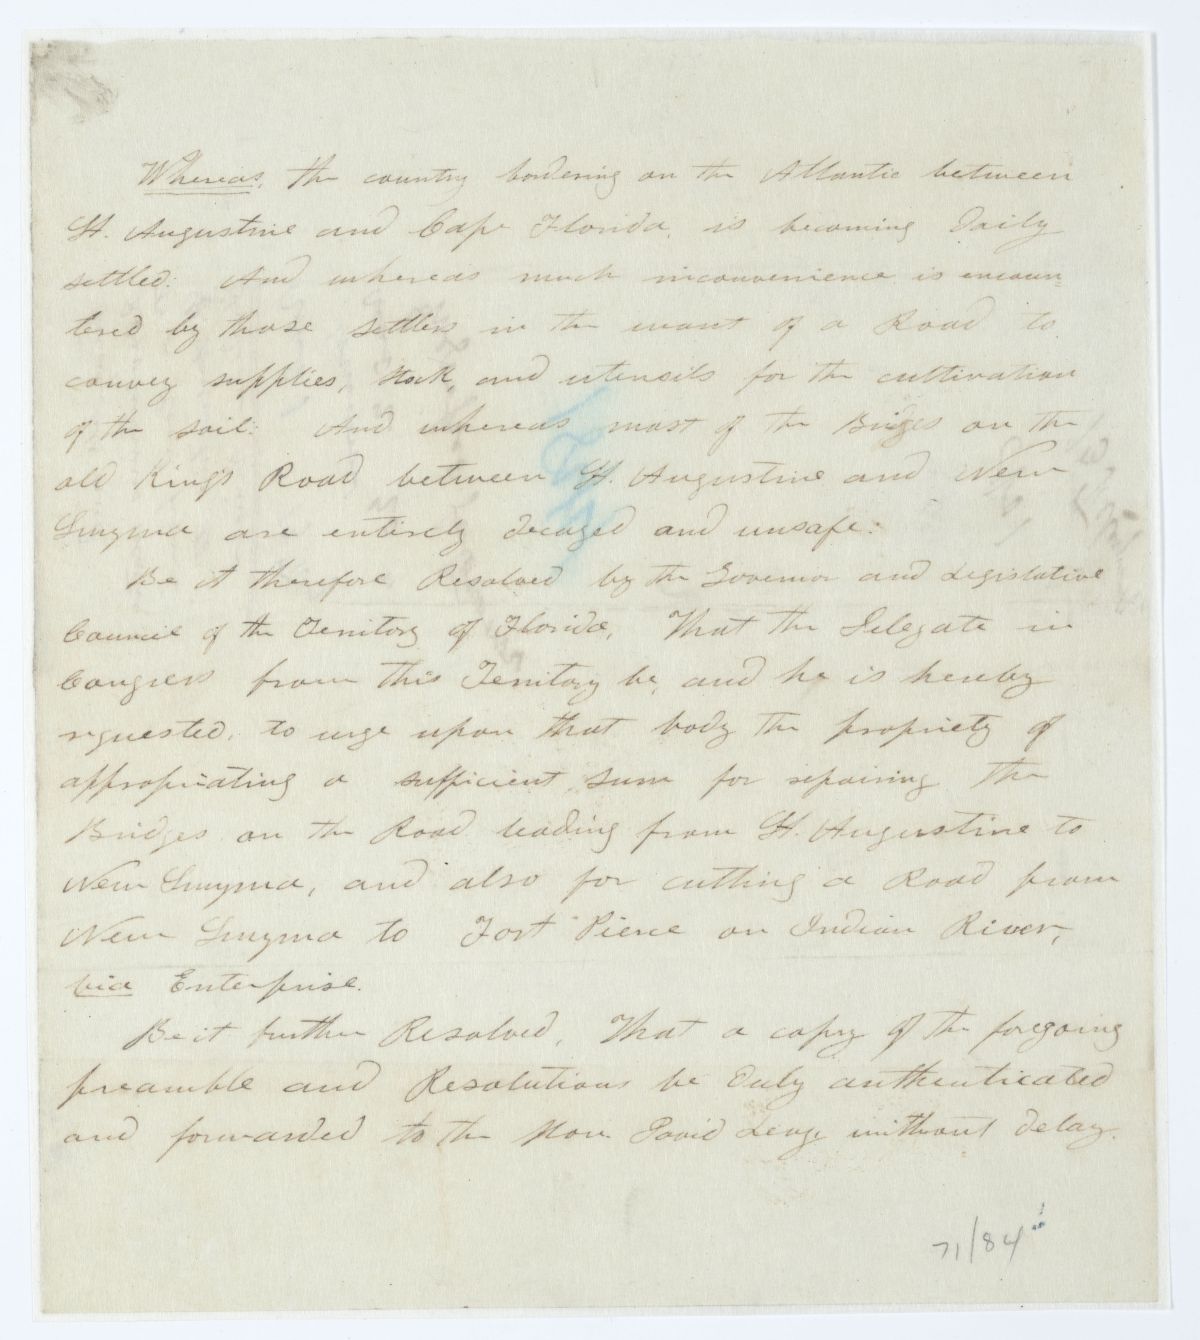 Whereas, the country bordering on the Atlantic between
St. Augustine and Cape Florida, is becoming Daily
settled: And whereas much inconvenience is encoun=
tered by those settlers in the want of a Road to
convey supplies, stock, and utensils for the cultivation
of the soil: And whereas most of the Bridges on the
old King's Road between St. Augustine and New
Smyrna are entirely decayed and unsafe:
Be it therefore Resolved by the Governor and Legislative
Council of the Territory of Florida, That the Delegate in
Congress from this Territory be, and he is hereby
requested, to urge upon that body the propriety of
appropriating a sufficient sum for repairing the
Bridges on the Road leading from St. Augustine to
New Smyrna, and also for cutting a Road from
New Smyrna to Fort Pierce on Indian River,
via Enterprise.
Be it further Resolved, That a copy of the foregoing
preamble and Resolutions be Duly authenticated
and forwarded to the Hon David Levy without delay.
71/84